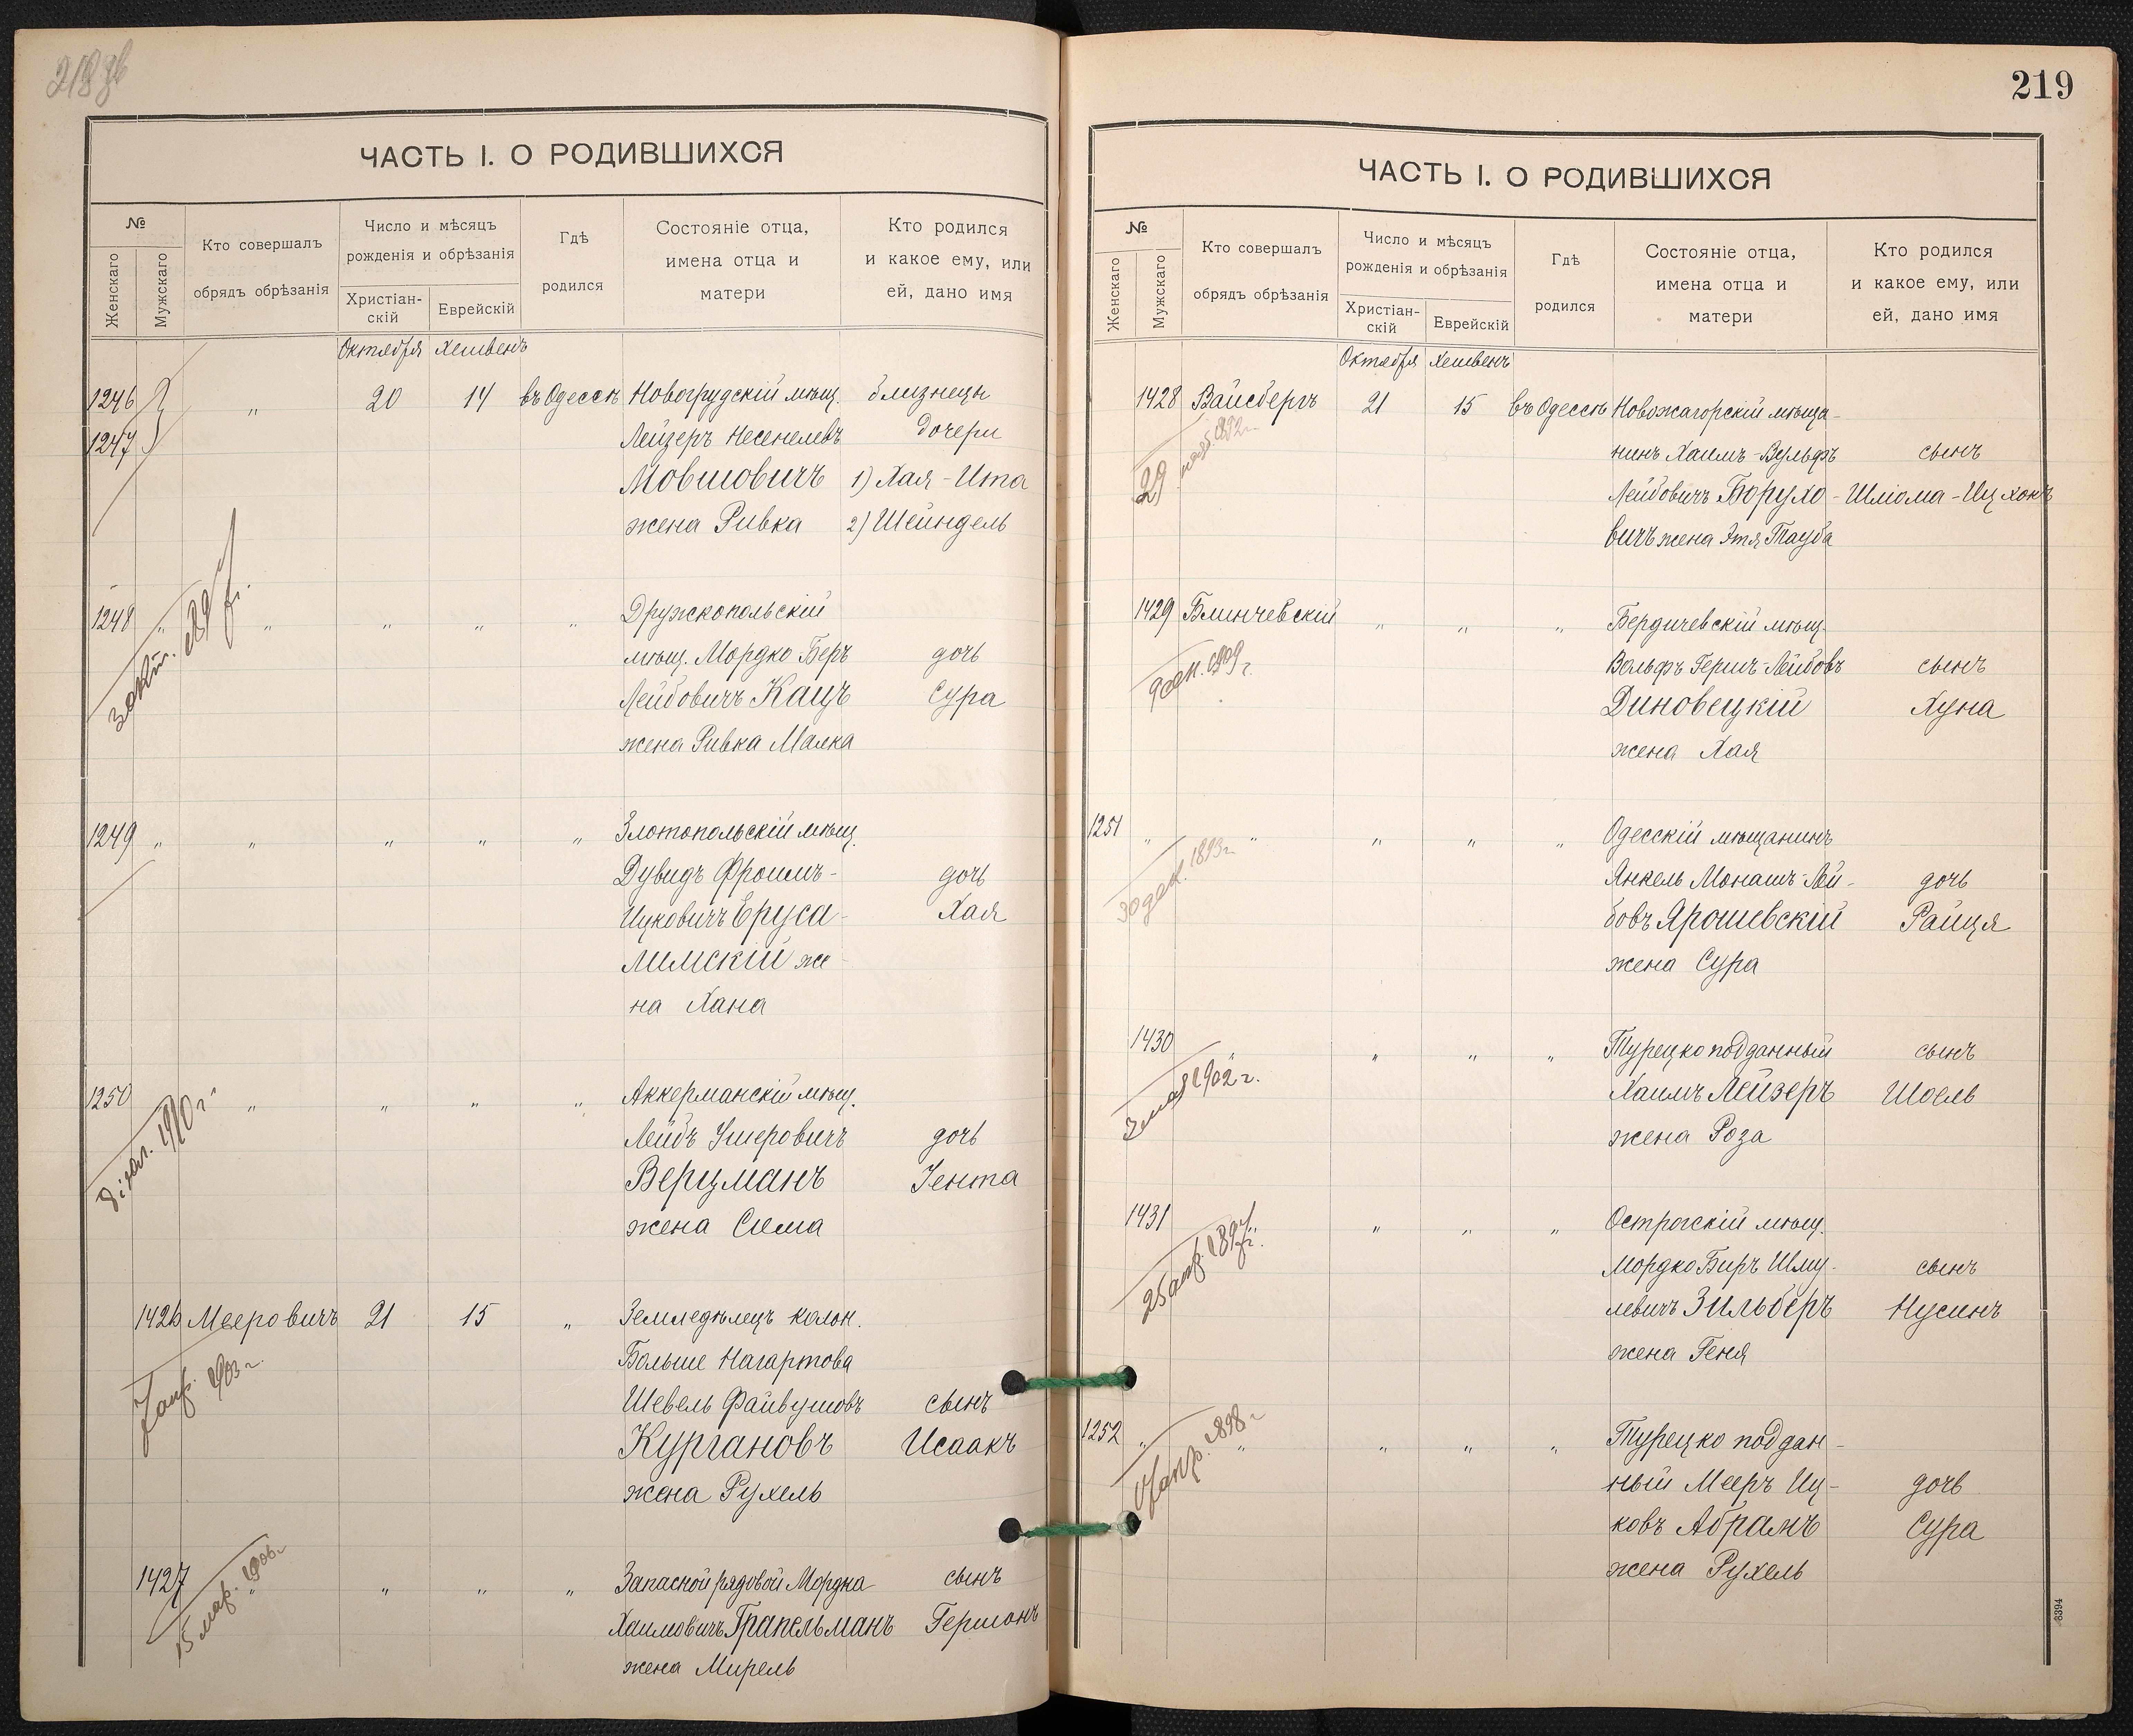 218 об
ЧАСТЬ I. О РОДИВШИХСЯ
№
Женскаго
Мужскаго
Кто совершалъ
обрядъ обрѣзанія
Число и мѣсяцъ
рожденія и обрѣзанія
Христіан-
скій
Еврейскій
Гдѣ
родился
Состояніе отца,
имена отца и
матери
Кто родился
и какое ему, или
ей, дано имя
Октября Хешвенъ
1246 " 20 14 въ Одессѣ Новогрудскій мѣщ. близнецы
1247 Лейзеръ Несенелевъ дочери
Мовшовичъ 1) Хая-Ита
жена Ривка 2) Шейндель
1248 " " " " " Дружкопольскій
мѣщ. Мордко Беръ дочь
Лейбовичъ Кацъ Сура
жена Ривка Малка
1249 " " " " " Злотопольскій мѣщ.
Дувидъ Фроимъ- дочь
Ицковичъ Еруса- Хая
лимскій же-
на Хана
1250 " " " " Аккерманскій мѣщ.
1910 г.
Лейбъ Ушеровичъ дочь
Верцманъ Іента
жена Сима
1426 Мееровичъ 21 15 " Земледѣлецъ колон.
1903 г.
Больше Нагартова
Шевель Файвушовъ сынъ
Кургановъ Исаакъ
жена Рухель
1427 " " " " Запасной рядовой Мордка сынъ
15 мар. 1906 г.
Хаимовичъ Грапельманъ Гершонъ
жена Мирель
219
ЧАСТЬ I. О РОДИВШИХСЯ
№
Женскаго
Мужскаго
Кто совершалъ
обрядъ обрѣзанія
Число и мѣсяцъ
рожденія и обрѣзанія
Христіан-
скій
Еврейскій
Гдѣ
родился
Состояніе отца,
имена отца и
матери
Кто родился
и какое ему, или
ей, дано имя
Октября Хешвенъ
1428 Вайсбергъ 21 15 въ Одессѣ Новожагорскій мѣща-
29
нинъ Хаимъ-Вульфъ сынъ
Лейбовичъ Борухо- Шліома-Ицхокъ
вичъ жена Этя Тауба
1429 Блинчевскій " " " Бердичевскій мѣщ.
Вольфъ Гершъ-Лейбовъ сынъ
Диновецкій Хуна
жена Хая
1251 " " " " " Одесскій мѣщанинъ
30 дек. 1893 г.
Янкель Монашъ-Лей- дочь
бовъ Ярошевскій Райця
жена Сура
1430 " " " " Турецко подданный сынъ
3 мая 1902 г.
Хаимъ Лейзеръ Шоель
жена Роза
1431 " " " " Острогскій мѣщ.
25 апр. 1897 г.
Мордко Биръ Шму- сынъ
левичъ Зильберъ Нусинъ
жена Геня
1252 " " " " " Турецко поддан-
апр. 1898 г.
ный Мееръ Иц- дочь
ковъ Абрамъ Сура
жена Рухель
8394